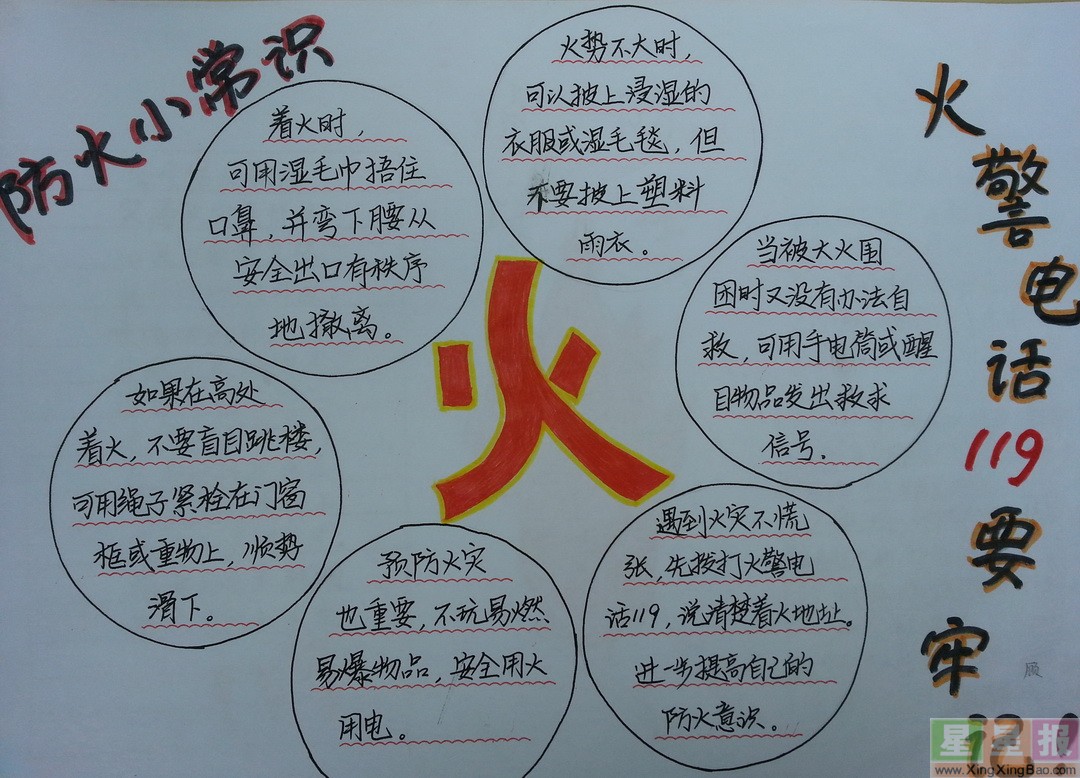 防火小常识
着火时，
可用湿毛巾捂住
口鼻，并弯下腰从
安全出口有秩序
地撤离。
火势不大时，
可以披上浸湿的
衣服或湿毛毯，但
不要披上塑料
雨衣。
当被大火围
困时又没有办法自
救，可用手电筒或醒
目物品发出救求
信号。
遇到火灾不慌
张，先拨打火警电
话119，说清楚着火地址。
进一步提高自己的
防火意识。
预防火灾
也重要，不玩易燃
易爆物品，安全用火
用电。
如果在高处
着火，不要盲目跳楼，
可用绳子紧栓在门窗
框或重物上，顺势
滑下。
火
火警电话119要牢记！
星星报
www.XingXingBao.com